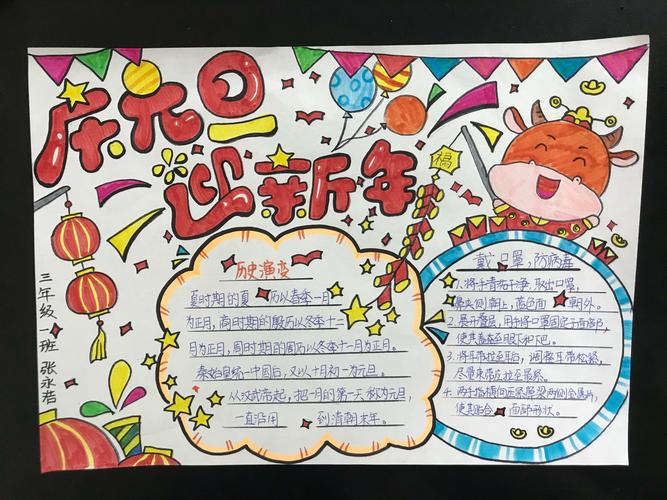 庆元旦
迎新年
福
三年级一班 张永浩
历史演变
夏时期的夏 历以春本一月
为正月,商时期的殷历以冬本十二
月为正月,周时期的周历以冬本十一月为正月。
秦始皇统一中国后,又以十月初一为元旦。
从汉武帝起,把一月的第一天称为元旦,
一直沿用 到清朝末年。
戴 口罩,防病毒
1、将手清洁干净,取出口罩,
鼻夹侧朝上,蓝色面 朝外。
2、展开叠层,用手将口罩固定于面部,
使其覆盖至眼下和下巴。
3、将耳带拉至耳后,调整耳带松紧,
尽量束带应拉至最紧。
4、两手指横向压紧鼻梁两侧金属片,
使其贴合 面部形状。